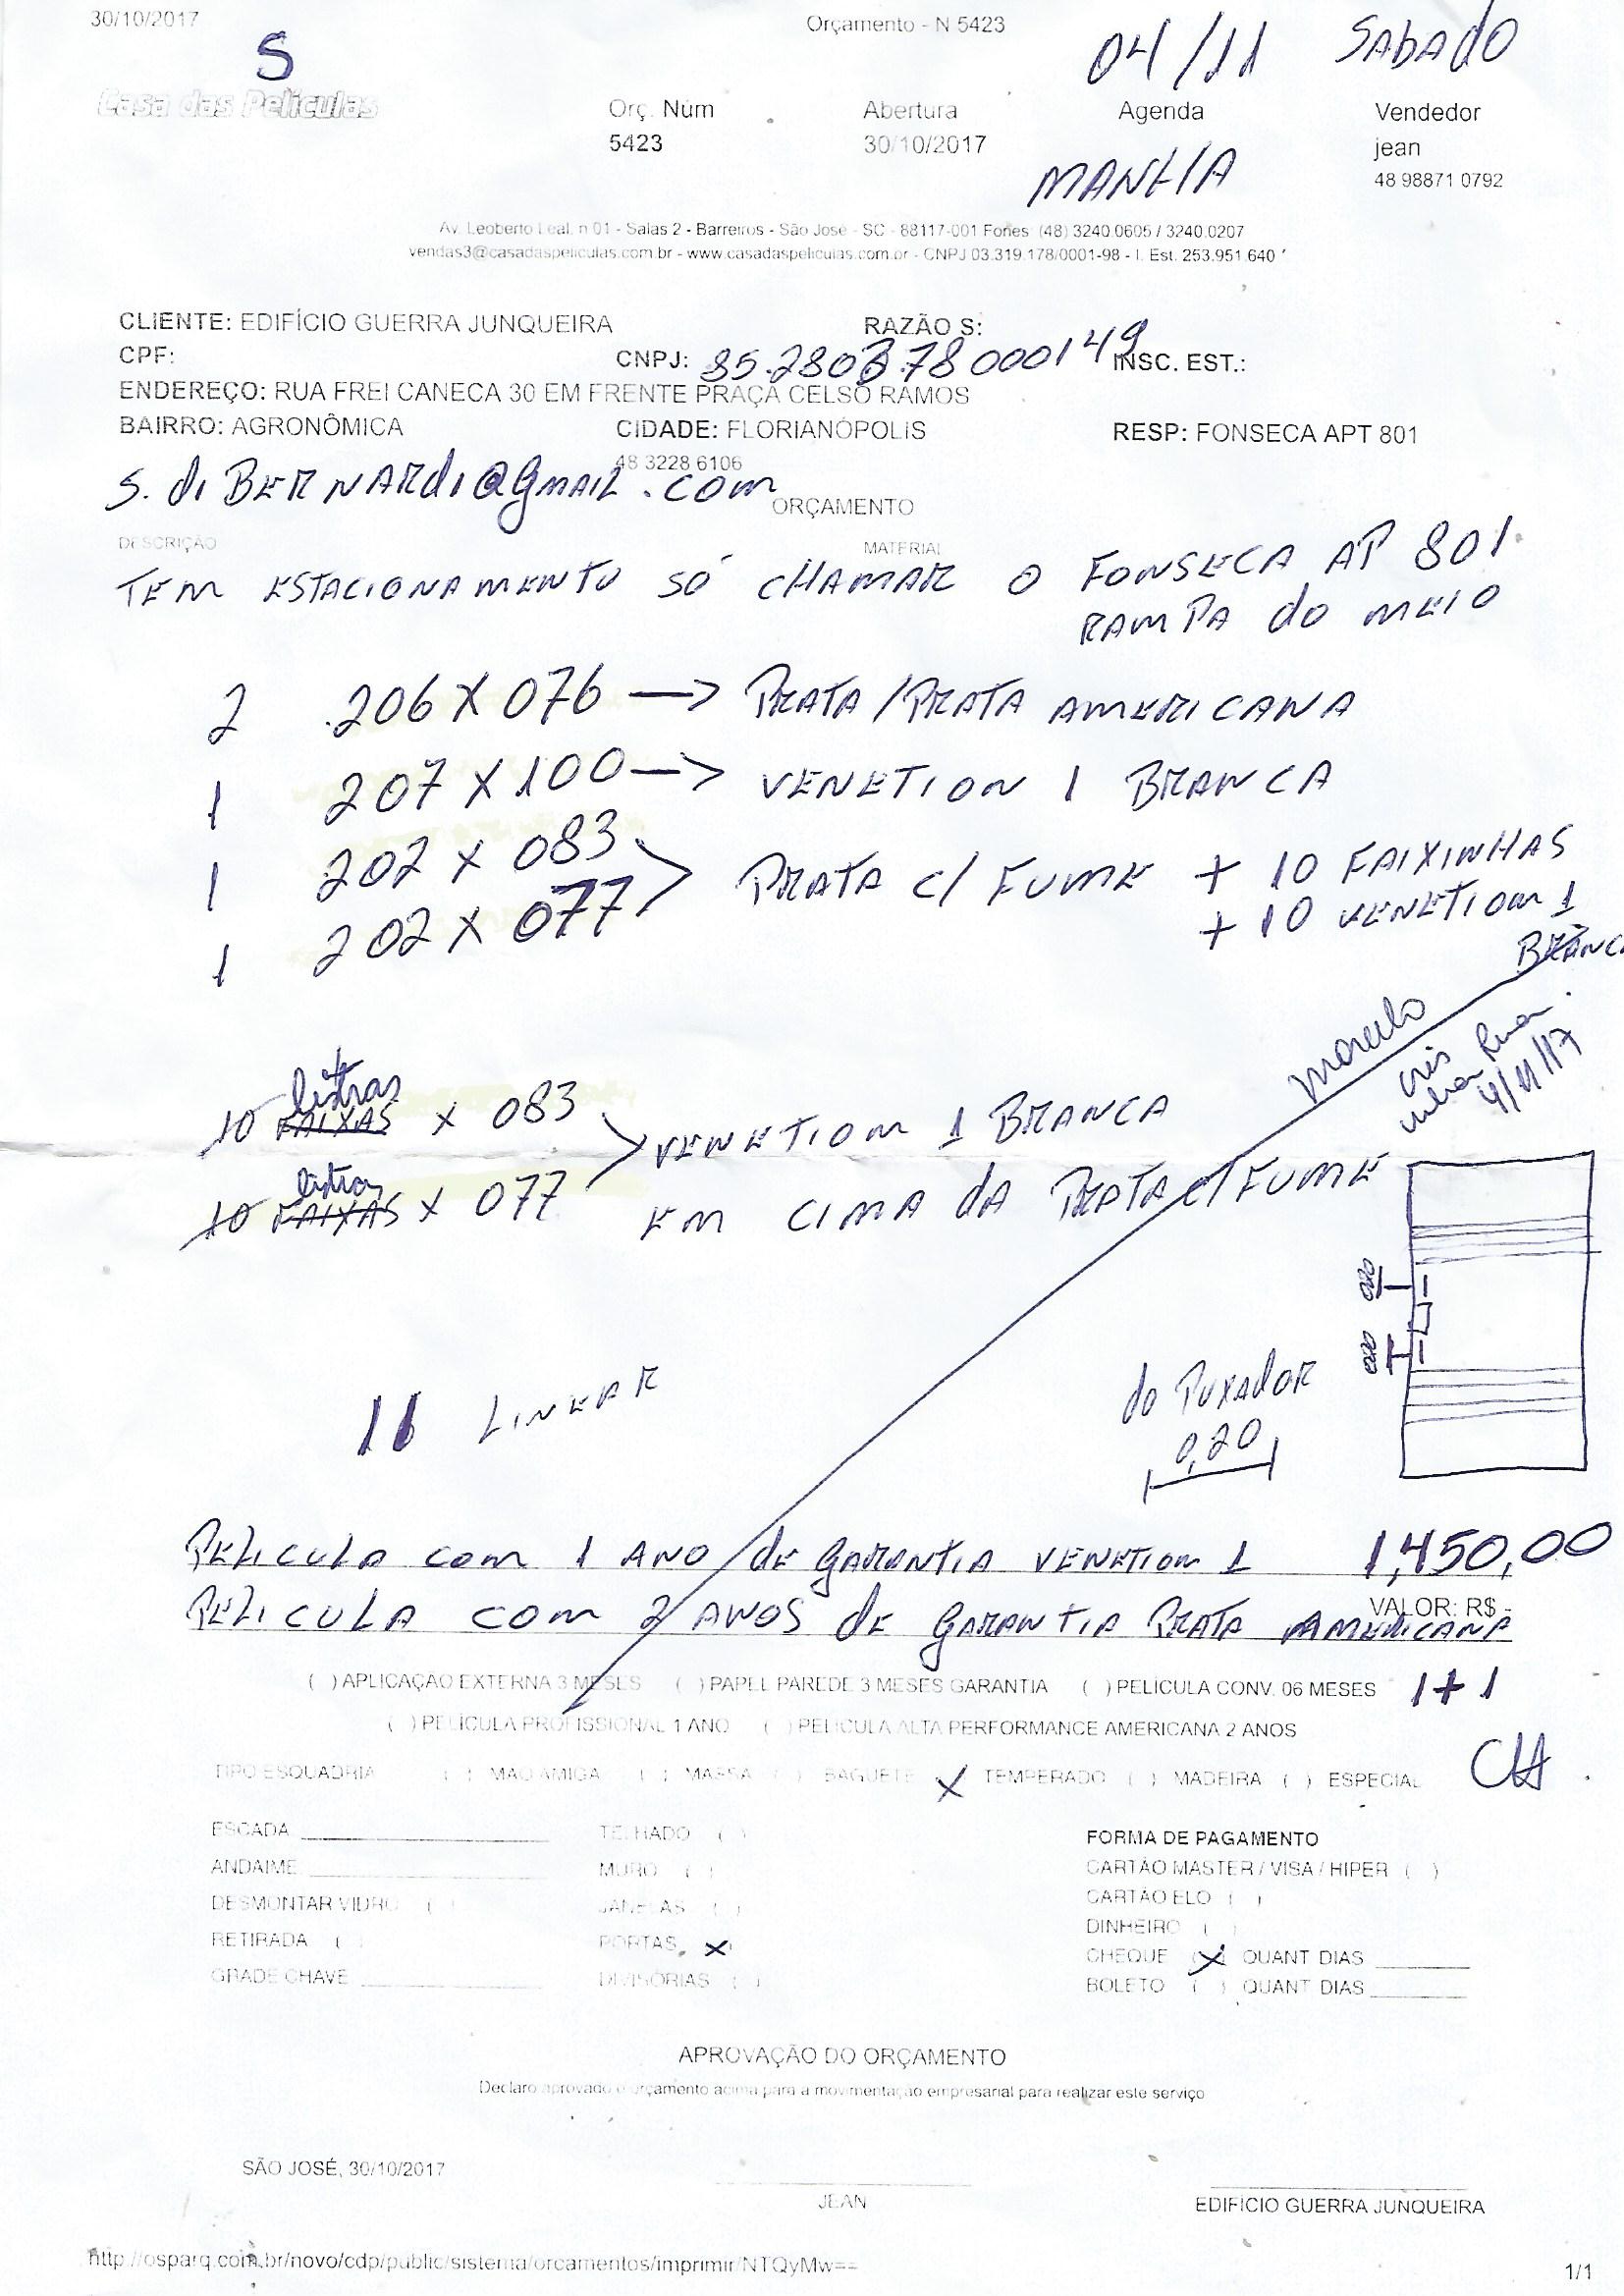 30/10/2017
Orçamento - N 5423
04/11 SABADO
S
Casa das Películas
Orç. Núm
Abertura
Agenda
Vendedor
5423
30/10/2017
MANHÃ
jean
48 98871 0792
Av. Leoberto Leal, n 01 - Salas 2 - Barreiros - São José - SC - 88117-001 Fones (48) 3240.0605 / 3240.0207
vendas3@casadaspeliculas.com.br - www.casadaspeliculas.com.br - CNPJ 03.319.178/0001-98 - I. Est. 253.951.640
CLIENTE: EDIFÍCIO GUERRA JUNQUEIRA
RAZÃO S:
CPF:
CNPJ: 85.280378000149
INSC. EST.:
ENDEREÇO: RUA FREI CANECA 30 EM FRENTE PRAÇA CELSO RAMOS
BAIRRO: AGRONÔMICA
CIDADE: FLORIANÓPOLIS
RESP: FONSECA APT 801
48 3228 6106
S.diBERNARdi@gmAIL.com
ORÇAMENTO
DESCRIÇÃO
MATERIAL
TEM ESTACIONAMENTO SÓ CHAMAR O FONSECA AP 801
RAMPA do MEIO
2 206 X 076 -> PRATA/PRATA AMERICANA
1 207 X 100 -> VENETION 1 BRANCA
1 202 X 083
1 202 X 077
PRATA C/ FUME + 10 FAIXINHAS
+ 10 VENETIOM 1
BRANCA
Marcelo
4/11/17
listras
10 FAIXAS X 083
listras
10 FAIXAS X 077
VENETIOM 1 BRANCA
EM CIMA dA PRATA C/FUME
020
020
11 LINEAR
do PUXADOR
0,20
PELICULA com 1 ANO dE GARANTIA VENETIOM 1 1,450,00
VALOR: R$ -
PELICULA COM 2 ANOS dE GARANTIA PRATA AMERICANA
( ) APLICAÇÃO EXTERNA 3 MESES ( ) PAPEL PAREDE 3 MESES GARANTIA ( ) PELÍCULA CONV. 06 MESES 1+1
( ) PELÍCULA PROFISSIONAL 1 ANO ( ) PELÍCULA ALTA PERFORMANCE AMERICANA 2 ANOS
CH
TIPO ESQUADRIA ( ) MÃO AMIGA ( ) MASSA ( ) BAGUETE X TEMPERADO ( ) MADEIRA ( ) ESPECIAL
ESCADA
TELHADO ( )
FORMA DE PAGAMENTO
ANDAIME
MURO ( )
CARTÃO MASTER / VISA / HIPER ( )
DESMONTAR VIDRO ( )
JANELAS ( )
CARTÃO ELO ( )
RETIRADA ( )
PORTAS (X)
DINHEIRO ( )
CHEQUE (X) QUANT DIAS
GRADE CHAVE
DIVISÓRIAS ( )
BOLETO ( ) QUANT DIAS
APROVAÇÃO DO ORÇAMENTO
Declaro aprovado o orçamento acima para a movimentação empresarial para realizar este serviço
SÃO JOSÉ, 30/10/2017
JEAN
EDIFICIO GUERRA JUNQUEIRA
http://osparq.com.br/novo/cdp/public/sistema/orcamentos/imprimir/NTQyMw==
1/1